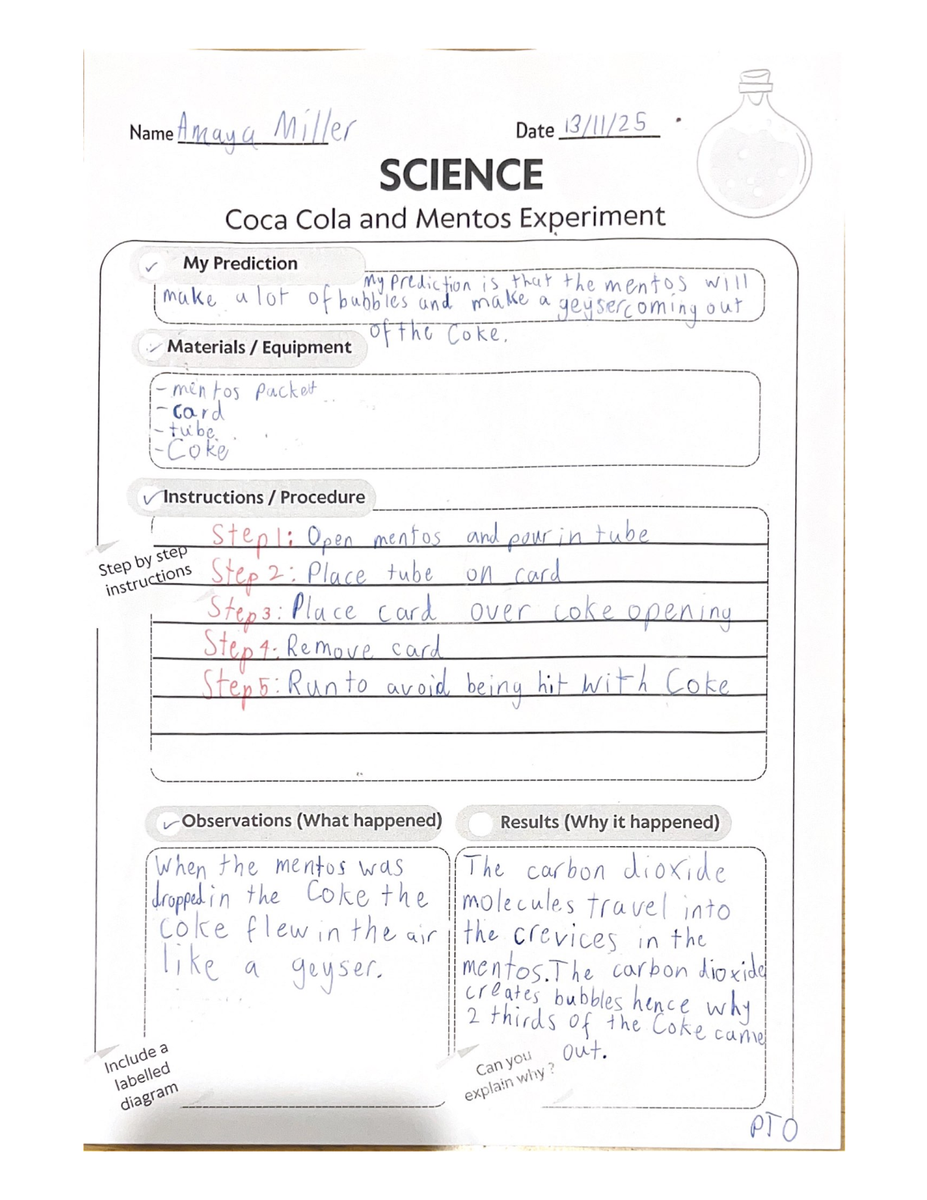 Name Amaya Miller Date 13/11/25
SCIENCE
Coca Cola and Mentos Experiment
My Prediction
My prediction is that the mentos will
make a lot of bubbles and make a geyser coming out
of the Coke.
Materials / Equipment
- mentos packet
- card
- tube
- Coke
Instructions / Procedure
Step by step
instructions
Step 1: Open mentos and pour in tube
Step 2: Place tube on card
Step 3: Place card over coke opening
Step 4: Remove card
Step 5: Run to avoid being hit with Coke
Observations (What happened)
When the mentos was
dropped in the Coke the
Coke flew in the air
like a geyser.
Include a
labelled
diagram
Results (Why it happened)
The carbon dioxide
molecules travel into
the crevices in the
mentos. The carbon dioxide
creates bubbles hence why
2 thirds of the Coke came
out.
Can you
explain why?
PTO